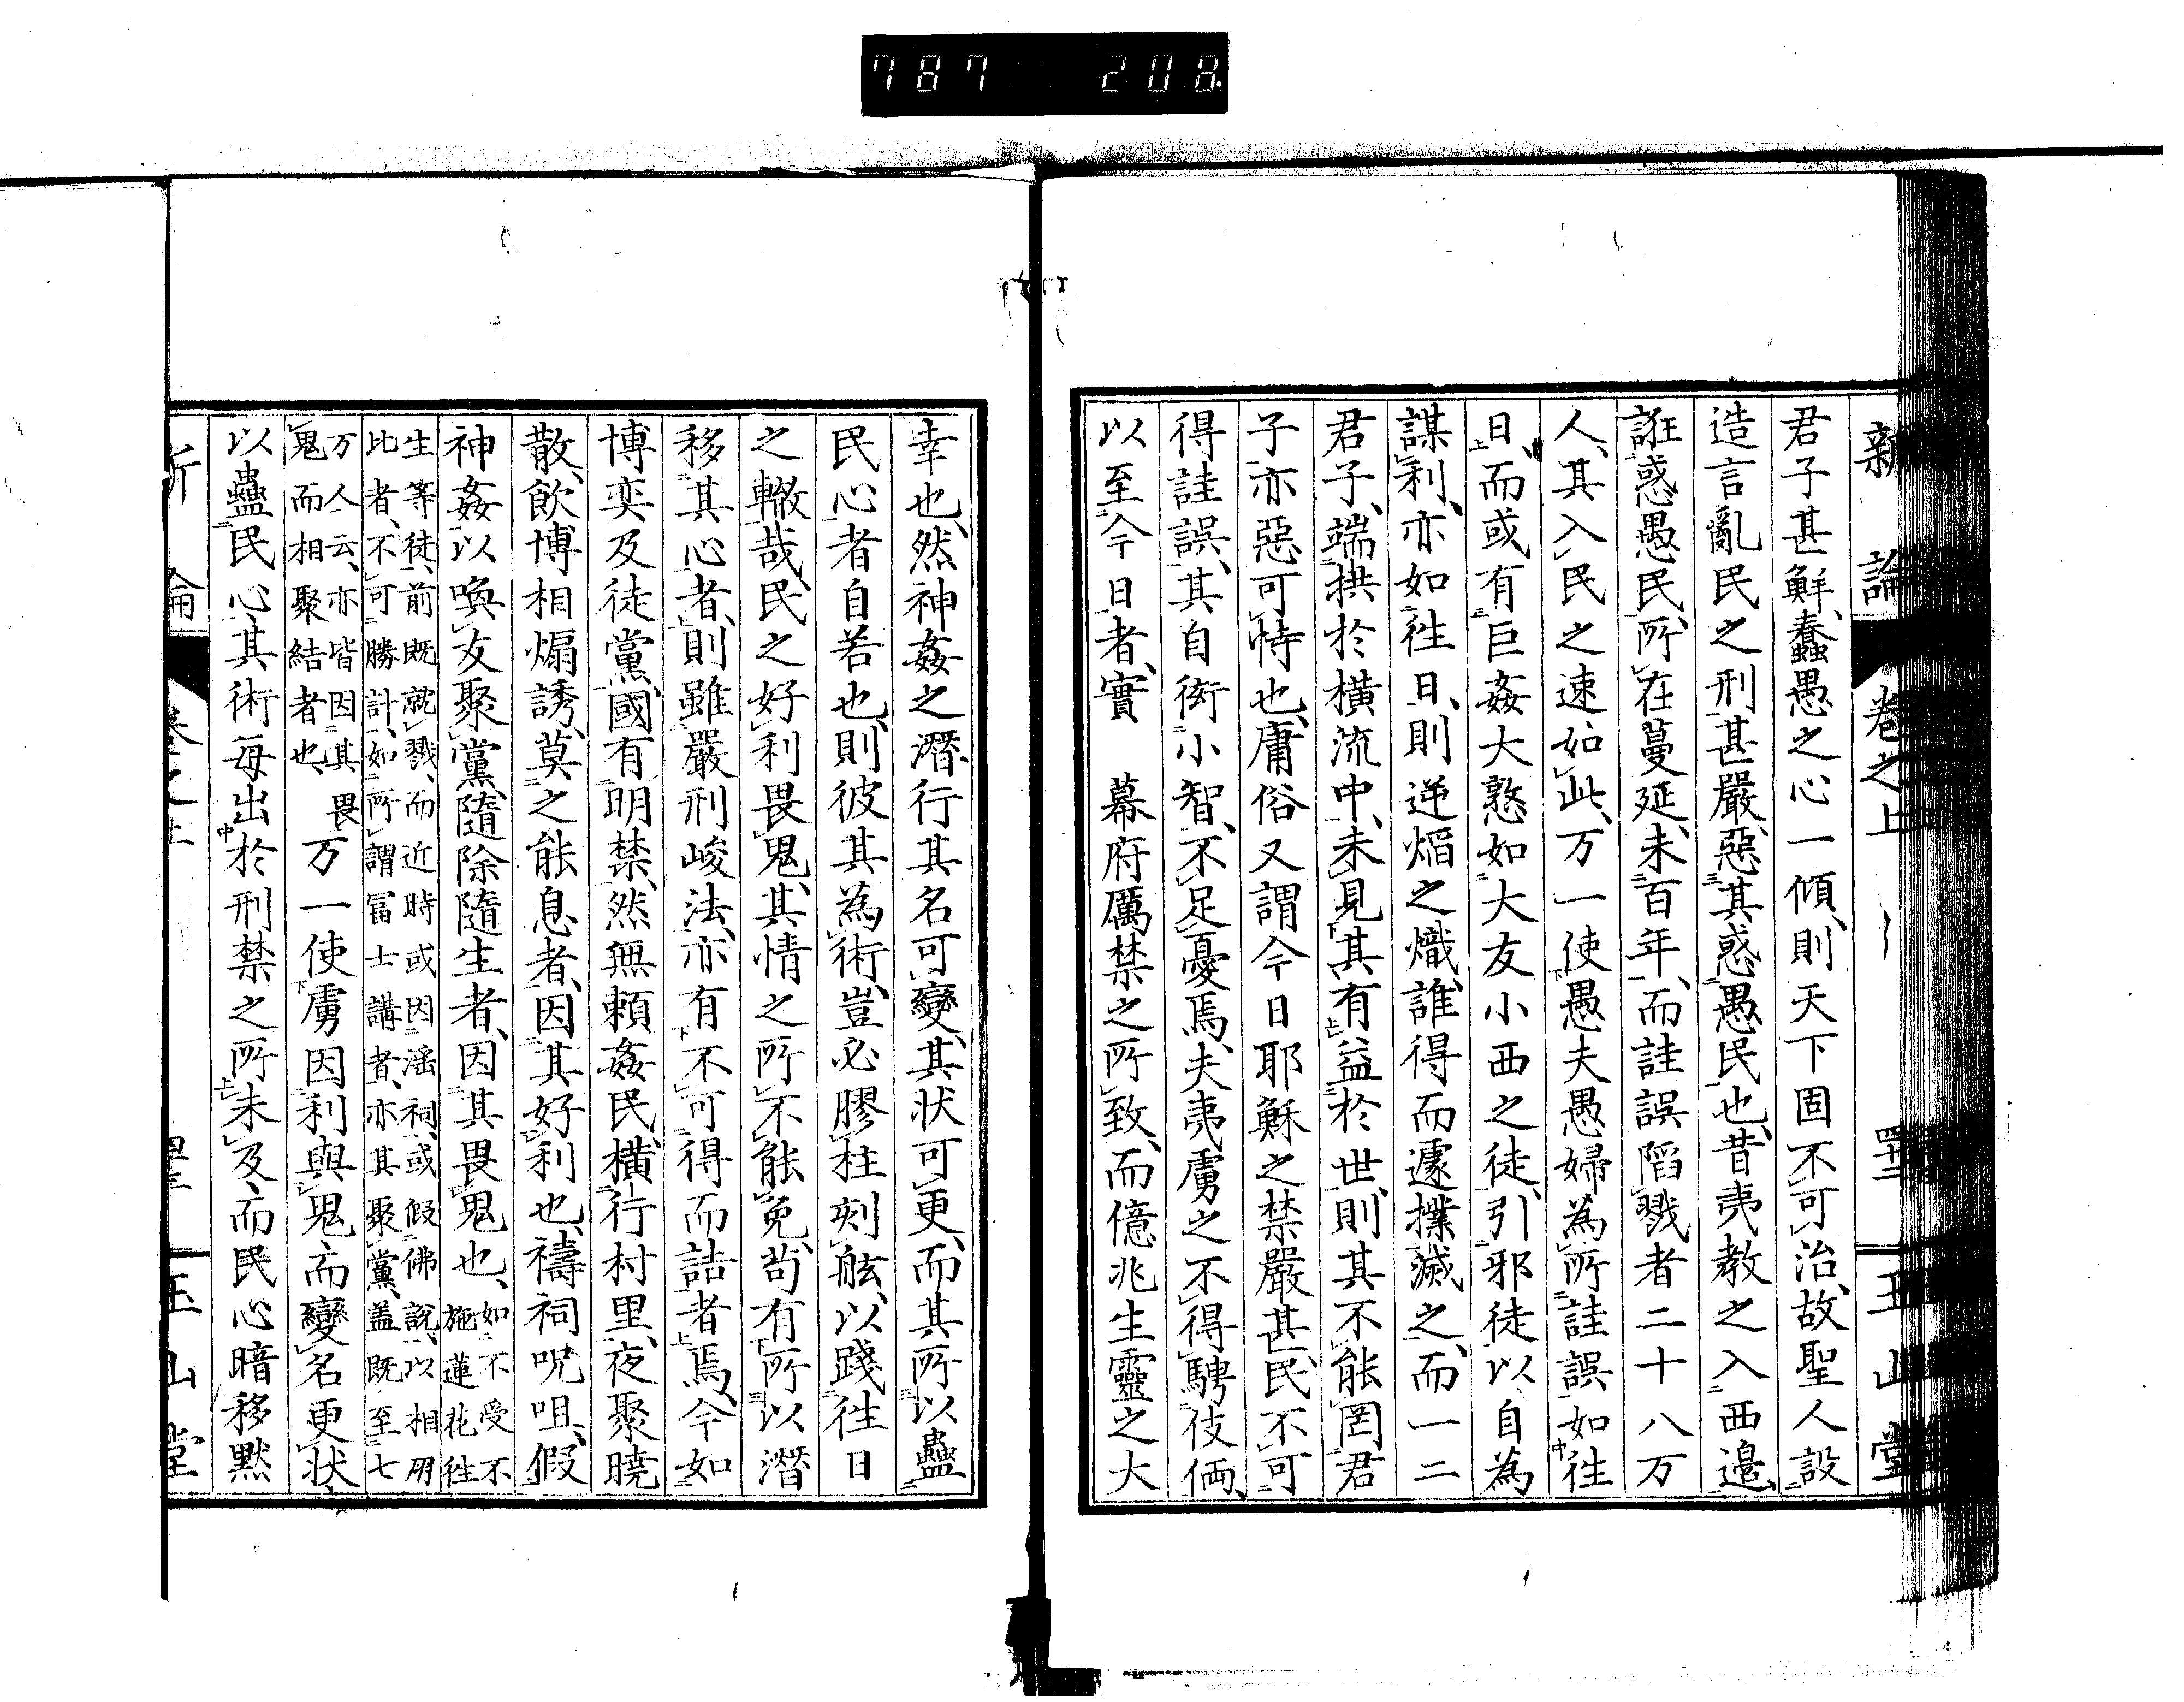 787 208
新論 卷之上 玉山堂
君子甚鮮、蠢愚之心一傾、則天下固不可治、故聖人設
造言亂民之刑甚嚴、惡其惑愚民也、昔夷教之入西邊、
誑惑愚民、所在蔓延、未百年、而詿誤陷戮者二十八万
人、其入民之速如此、万一使愚夫愚婦為所詿誤如往
日、而或有巨姦大憝如大友小西之徒、引邪徒以自為
謀利、亦如往日、則逆焰之熾、誰得而遽撲滅之、而一二
君子、端拱於横流中、未見其有益於世、則其不能罔君
子亦惡可恃也、庸俗又謂今日耶穌之禁嚴甚、民不可
得詿誤、其自衒小智、不足憂焉、夫夷虜之不得騁伎倆、
以至今日者、實　幕府厲禁之所致、而億兆生靈之大
幸也、然神姦之潛行其名可變、其状可更、而其所以蠱
民心者自若也、則彼其為術、豈必膠柱刻舷、以踐往日
之轍哉、民之好利畏鬼、其情之所不能免、苟有所以潛
移其心者、則雖嚴刑峻法、亦有不可得而詰者焉、今如
博奕及徒黨、國有明禁、然無頼姦民、横行村里、夜聚曉
散、飲博相煽誘、莫之能息者、因其好利也、禱祠呪咀、假
神姦以喚友聚黨、隨除隨生者、因其畏鬼也、如不受不
施蓮花往
生等徒、前既就戮、而近時或因淫祠、或假佛説、以相朋
比者、不可勝計、如所謂冨士講者、亦其聚黨、盖既至七
万人云、亦皆因其畏
鬼而相聚結者也、万一使虜因利與鬼而變名更状、
以蠱民心、其術毎出於刑禁之所未及、而民心暗移默